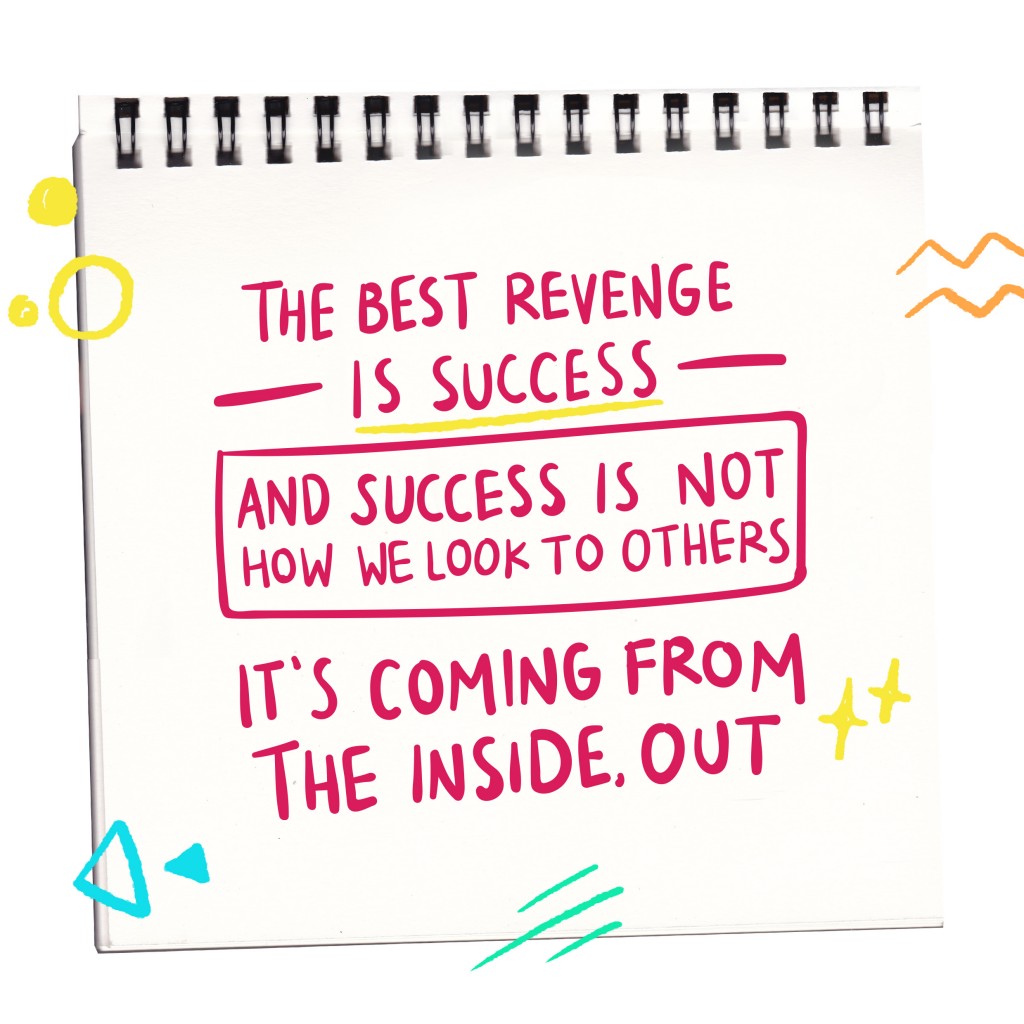 THE BEST REVENGE
IS SUCCESS
AND SUCCESS IS NOT
HOW WE LOOK TO OTHERS
IT'S COMING FROM
THE INSIDE, OUT